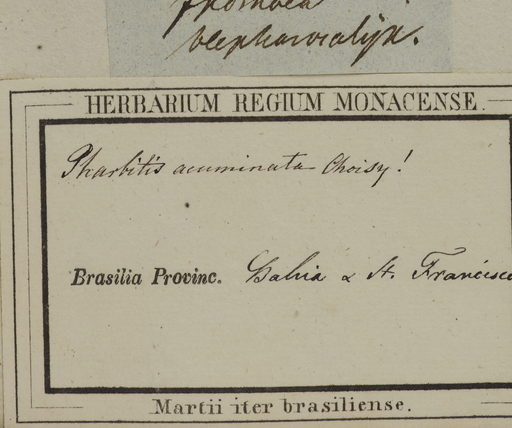 Ipomoea
blepharocalyx.
HERBARIUM REGIUM MONACENSE.
Pharbitis acuminata Choisy!
Brasilia Provinc. Bahia & St. Francisco
Martii iter brasiliense.